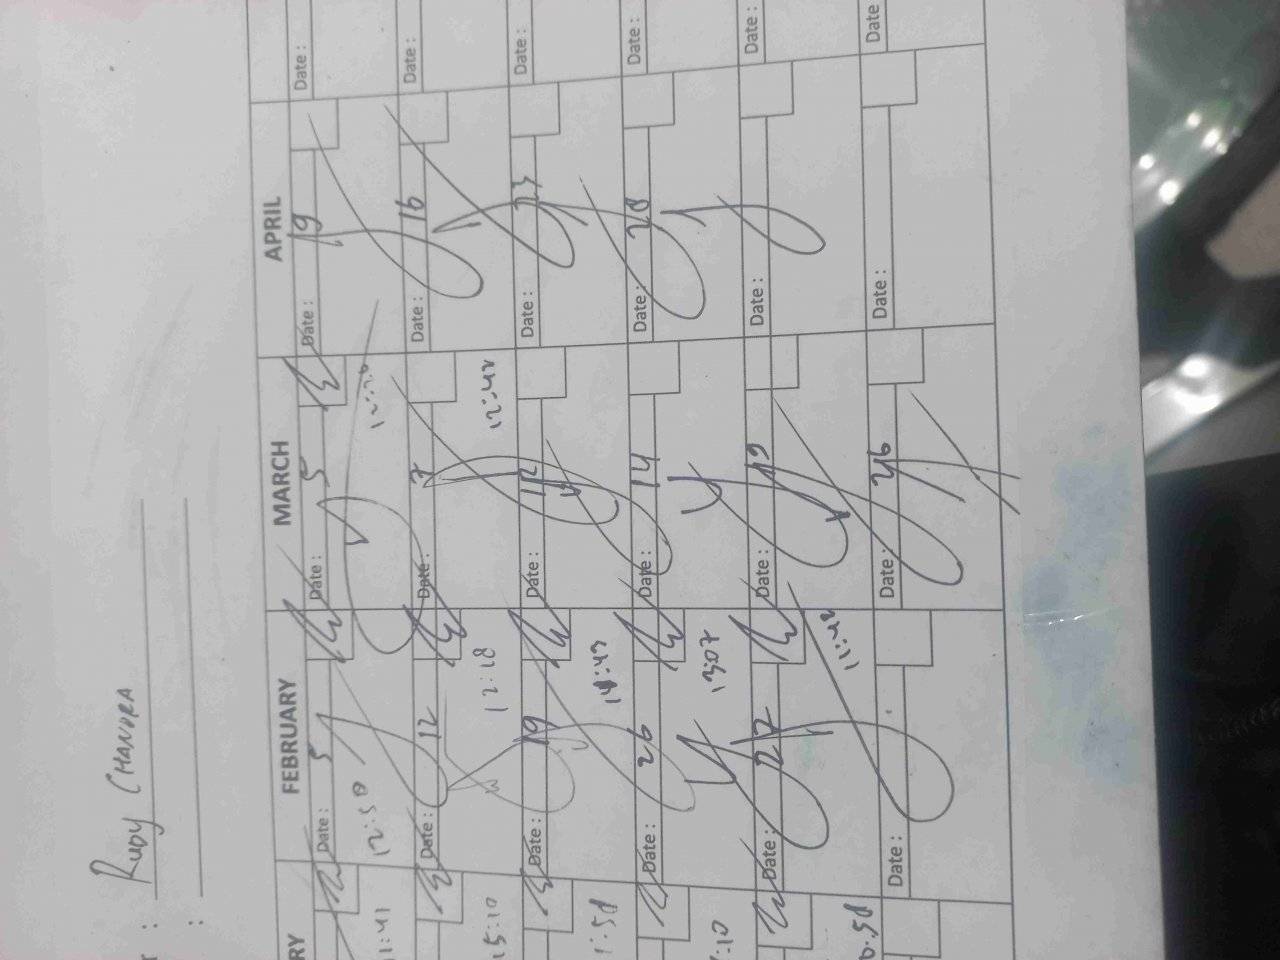 : RUDY CHANDRA
:
RY FEBRUARY MARCH APRIL
Date : 5 Date : 5 Date : 19 Date :
1:41 12:50 12:20
Date : 12 Date : 7 Date : 16 Date :
15:10 12:18 12:42
Date : 19 Date : 12 Date : 23 Date :
1:58 14:43
Date : 26 Date : 14 Date : 28 Date :
:10 13:07
Date : 27 Date : 19 Date : Date :
0:58 11:42
Date : Date : 26 Date : Date